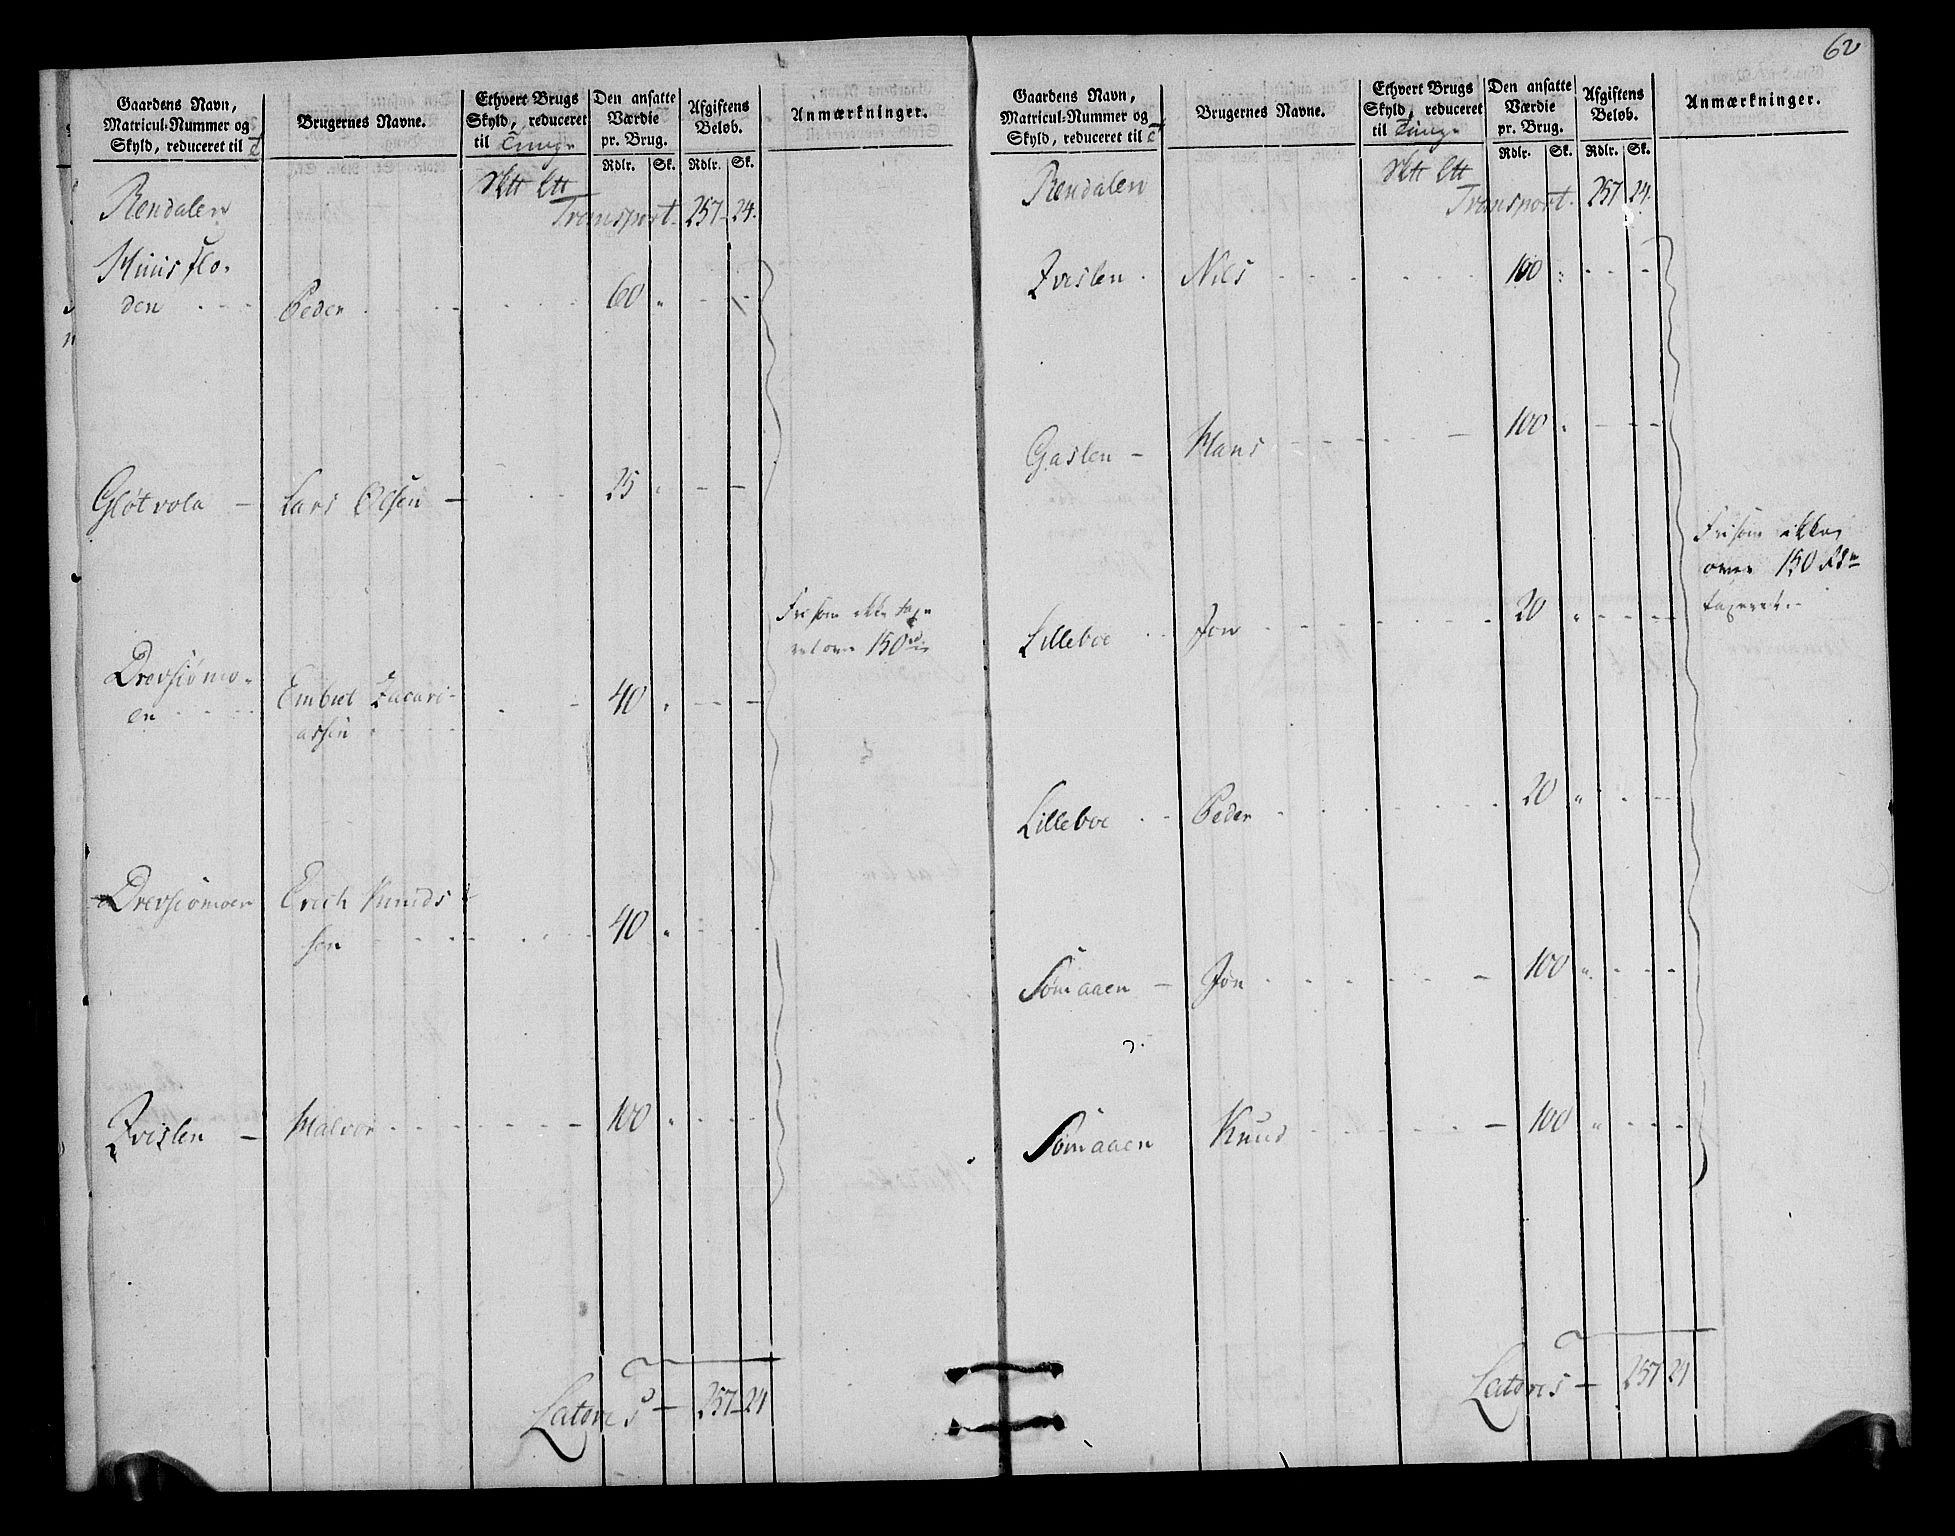 Gaardens Navn,
Matricul-Nummer og
Skyld, reduceret til
Brugernes Navne.
Ethvert Brugs
Skyld, reduceret
til Tunge
Den ansatte
Værdie
pr. Brug.
Afgiftens
Beløb.
Anmærkninger.
Rdlr. Sk. Rdlr. Sk.
Rendalen
Transport. 257 - 24.
Huusflo-
den - - - Peder - - - 60 " - -
Gløtvola - Lars Olsen - 25 " - -
Fri som ikke taxe
ret over 150 rd
Drevsiømo-
en - - - Embret Zacari-
assen - - - 40 " - -
Drevsiømoen Erich Knuds
sen - - - 40 " - -
Qvislen - Halvor - - - 100 " - -
Lateris - 257 - 24
62
Gaardens Navn,
Matricul-Nummer og
Skyld, reduceret til
Brugernes Navne.
Ethvert Brugs
Skyld, reduceret
til Tunge
Den ansatte
Værdie
pr. Brug.
Afgiftens
Beløb.
Anmærkninger.
Rdlr. Sk. Rdlr. Sk.
Rendalen
Transport. 257 24.
Qvislen - Nils - - - 100 : - -
Gaslen - Hans - - - 100 " - -
Fri som ikke
over 150 Rd
taxeret.
Lilleboe - - Jon - - - 20 " - -
Lilleboe - - Peder - - - 20 " - -
Sømaaen - Jon - - - 100 " - -
Sømaaen Knud - - - 100 " - -
Lateris - 257 24